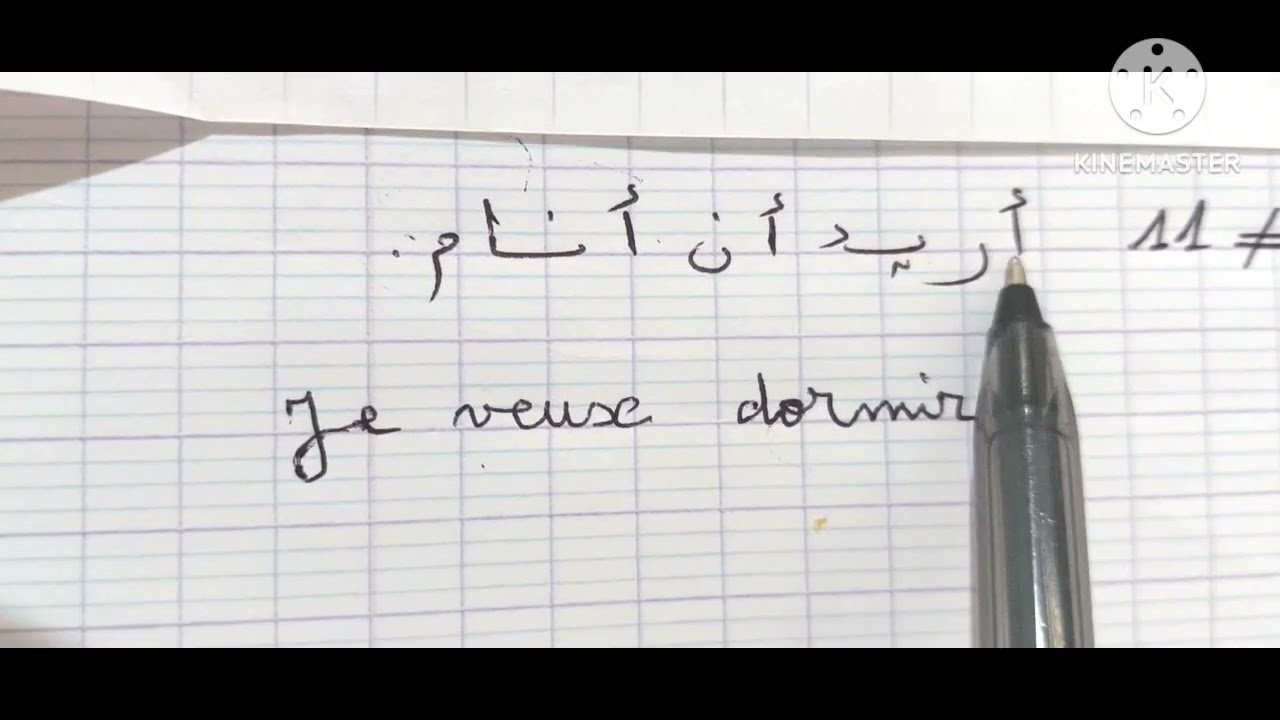 KINEMASTER
11 ≠ أريد أن أنام.
Je veux dormir